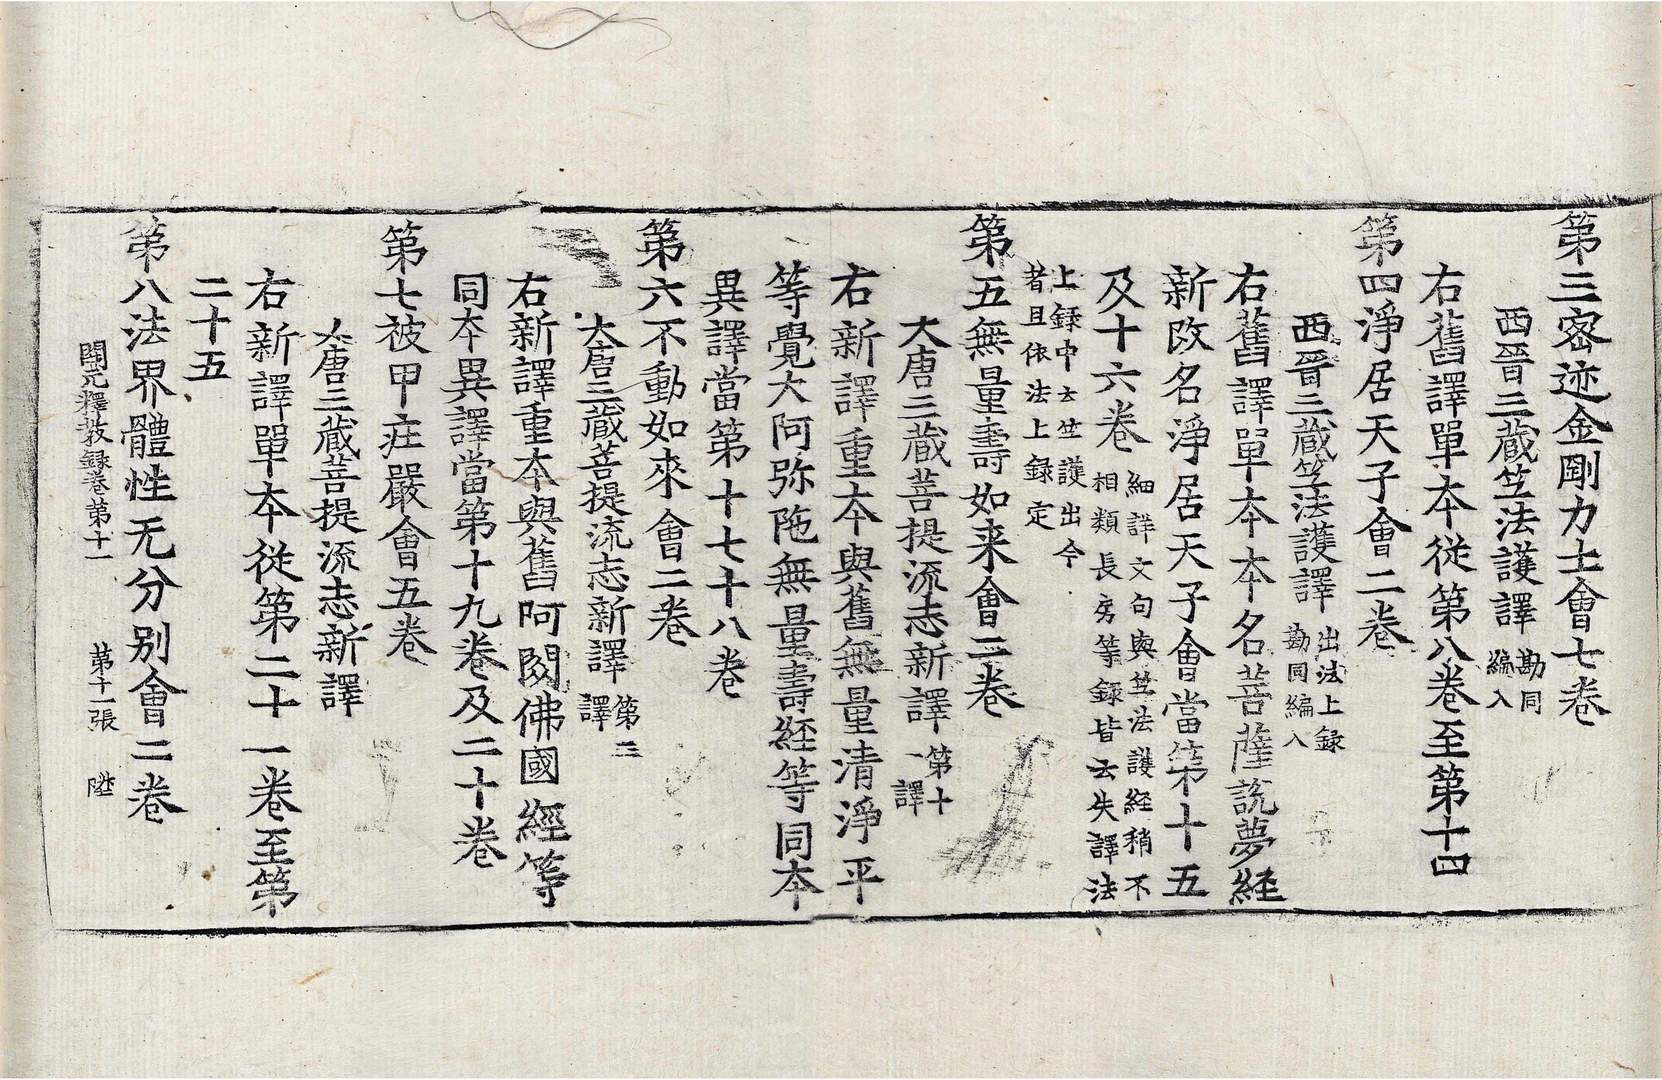 第三密迹金剛力士會七卷
西晉三藏竺法護譯勘同編入
右舊譯單本從第八卷至第十四
第四淨居天子會二卷
西晉三藏竺法護譯出法上録勘同編入
右舊譯單本本名菩薩說夢經
新改名淨居天子會當第十五
及十六卷細詳文句與竺法護經稍不相類長房等録皆云失譯法
上録中云竺護出今者且依法上録定
第五無量壽如来會二卷
大唐三藏菩提流志新譯第十一譯
右新譯重本與舊無量清淨平
等覺大阿弥陁無量壽経等同本
異譯當第十七十八卷
第六不動如來會二卷
大唐三藏菩提流志新譯第三譯
右新譯重本與舊阿閦佛國經等
同本異譯當第十九卷及二十卷
第七被甲莊嚴會五卷
大唐三藏菩提流志新譯
右新譯單本從第二十一卷至第
二十五
第八法界體性无分别會二卷
開元釋教録卷第十一 第十一張 陞